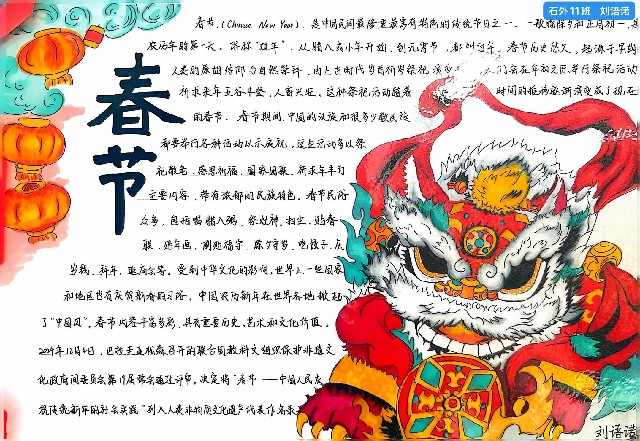 石外11班 刘语诺
春节
春节,(Chinese New Year),是中国民间最隆重最富有特色的传统节日之一,一般指除夕和正月初一,是
农历年的第一天,俗称“过年”,从腊八或小年开始,到元宵节,都叫过年。春节历史悠久,起源于早期
人类的原始信仰与自然崇拜,由上古时代岁首祈岁祭祀演变
们会在年初之际举行祭祀活动
祈求来年五谷丰登,人畜兴旺。这种祭祀活动随着
时间的推移逐渐演变成了现在
的春节。春节期间,中国的汉族和很多少数民族
都要举行各种活动以示庆祝,这些活动多以祭
祀祖先,感恩祈福,阖家团聚,祈求丰年为
主要内容,带有浓郁的民族特色。春节民俗
众多,包括喝腊八粥,祭灶神,扫尘,贴春
联,贴年画,剃头,除夕守岁,吃饺子,压
岁钱,拜年,逛庙会等,受到中华文化的影响,世界上一些国家
和地区也有庆贺新春的习俗。中国农历新年在世界各地掀起
了“中国风”,春节内容丰富多彩,具有重要历史,艺术和文化价值。
2024年12月4日,巴拉圭亚松森召开的联合国教科文组织保护非遗文
化政府间委员会第19届常会通过评审,决定将“春节——中国人民庆
祝传统新年的社会实践”列入人类非物质文化遗产代表作名录
刘语诺